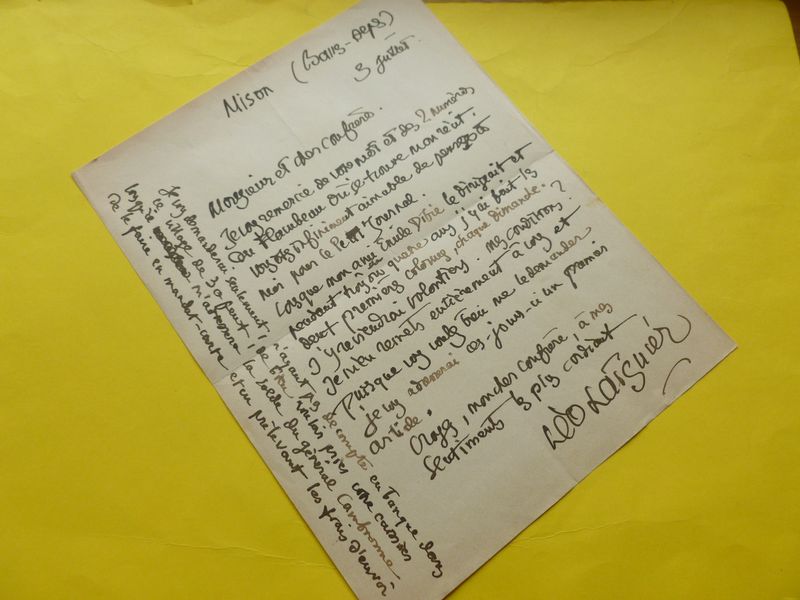 Mison (Basses-Alpes)
3 juillet.
Monsieur et cher confrère.
Je vous remercie de votre mot et des 2 numéros
du Flambeau où se trouve mon récit.
Vous êtes infiniment aimable de penser à
moi pour le Petit Journal.
Lorsque mon ami le dirigeait et
pendant trois ou quatre ans j'y ai fait les
deux premières colonnes, chaque dimanche.
J'y reviendrai volontiers. Mes conditions?
Je m'en remets entièrement à vous et
Puisque vous voulez bien me le demander
je vous adresserai ces jours-ci un premier
article.
Croyez, mon cher confrère, à mes
sentiments les plus cordiaux
Léo
Je vous demanderai seulement, n'ayant pas de compte en banque dans
ce village de 30 feux, de vouloir prier votre caissier
lorsqu'il m'adressera la solde du général Cambronne
de le faire en mandat-carte et en prélevant les frais d'envoi